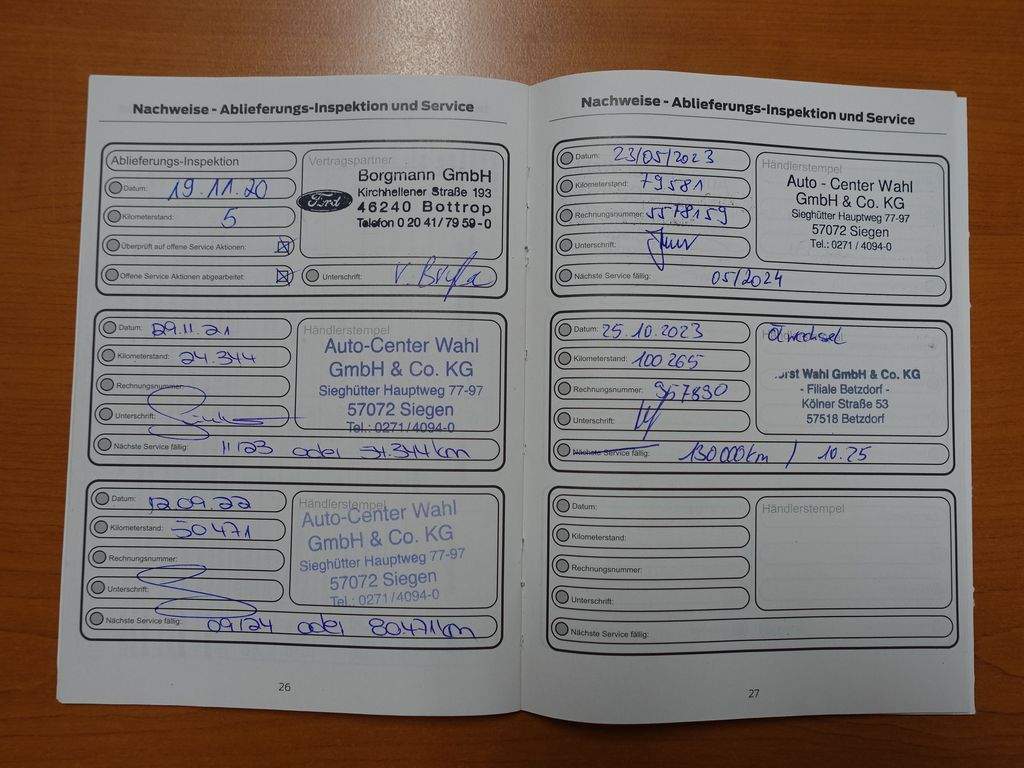 Nachweise - Ablieferungs-Inspektion und Service
Ablieferungs-Inspektion
Datum: 19.11.20
Kilometerstand: 5
Überprüft auf offene Service Aktionen: ☒
Offene Service Aktionen abgearbeitet: ☒
Vertragspartner
Ford
Borgmann GmbH
Kirchhellener Straße 193
46240 Bottrop
Telefon 0 20 41 / 79 59 - 0
Unterschrift:
Datum: 29.11.21
Kilometerstand: 24.344
Rechnungsnummer:
Unterschrift:
Händlerstempel
Auto-Center Wahl
GmbH & Co. KG
Sieghütter Hauptweg 77-97
57072 Siegen
Tel.: 0271/4094-0
Nächste Service fällig: 11/23 oder 54.344km
Datum: 12.09.22
Kilometerstand: 50471
Rechnungsnummer:
Unterschrift:
Händlerstempel
Auto-Center Wahl
GmbH & Co. KG
Sieghütter Hauptweg 77-97
57072 Siegen
Tel.: 0271/4094-0
Nächste Service fällig: 09/24 oder 80471km
26
Nachweise - Ablieferungs-Inspektion und Service
Datum: 23/05/2023
Kilometerstand: 79581
Rechnungsnummer: 5578159
Unterschrift:
Händlerstempel
Auto - Center Wahl
GmbH & Co. KG
Sieghütter Hauptweg 77-97
57072 Siegen
Tel.: 0271 / 4094-0
Nächste Service fällig: 05/2024
Datum: 25.10.2023
Kilometerstand: 100265
Rechnungsnummer: 957890
Unterschrift:
Ölwechsel
orst Wahl GmbH & Co. KG
- Filiale Betzdorf -
Kölner Straße 53
57518 Betzdorf
Nächste Service fällig: 130000km / 10.25
Datum:
Kilometerstand:
Rechnungsnummer:
Unterschrift:
Händlerstempel
Nächste Service fällig:
27